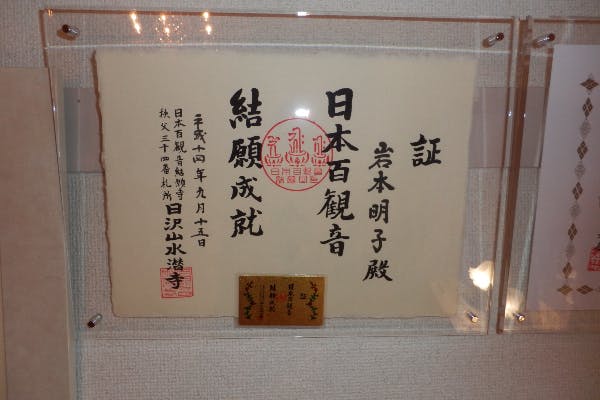 証
岩本明子殿
日本百観音
結願成就
平成十四年九月十五日
日本百観音結願寺
秩父三十四番札所
日沢山水潜寺
証
日本百観音
結願成就